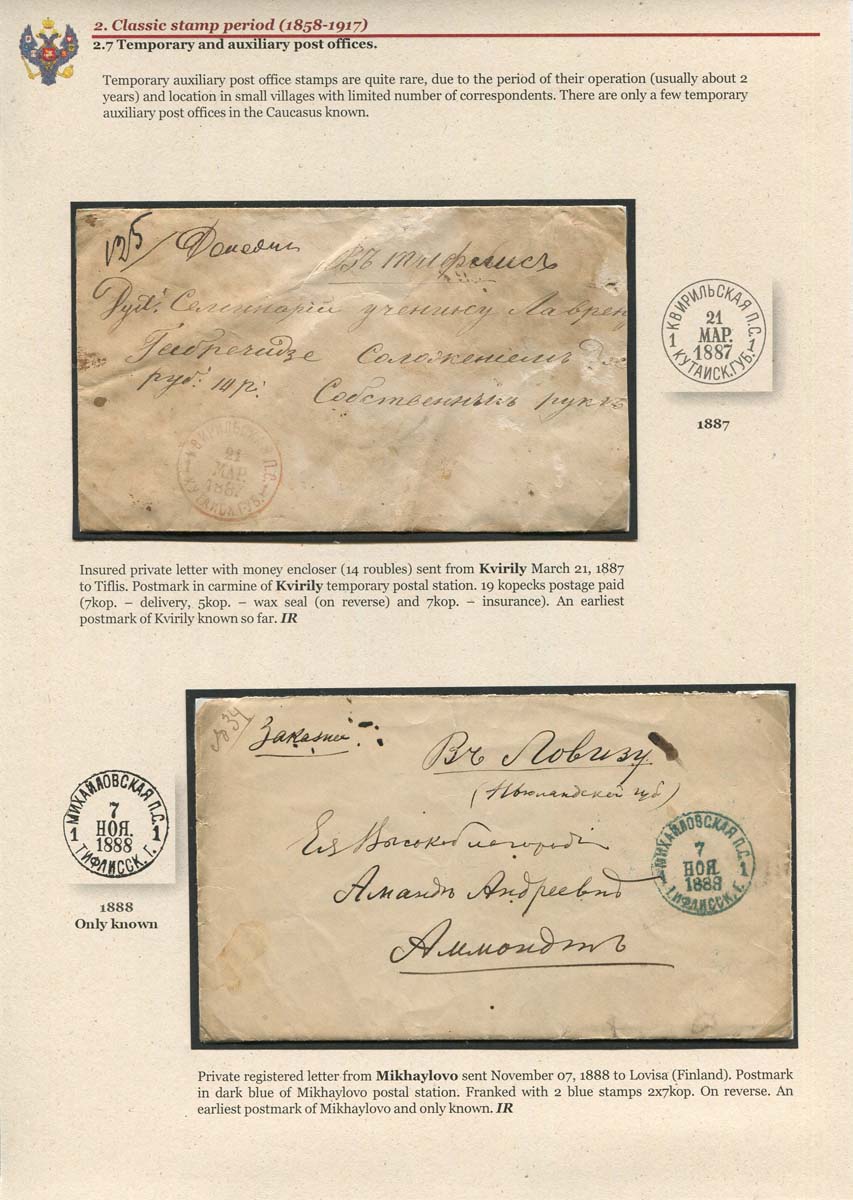 2. Classic stamp period (1858-1917)
2.7 Temporary and auxiliary post offices.
Temporary auxiliary post office stamps are quite rare, due to the period of their operation (usually about 2
years) and location in small villages with limited number of correspondents. There are only a few temporary
auxiliary post offices in the Caucasus known.
125/
Въ Тифлисъ
Дух. Семинарiи ученику Лаврен
Габречидзе Соложенiемъ
руб. 14 р.
Собственныхъ рукъ
КВИРИЛЬСКАЯ П.С.
21
МАР.
1887
КУТАИСК.ГУБ.
КВИРИЛЬСКАЯ П.С.
1 21 1
МАР.
1887
КУТАИСК.ГУБ.
1887
Insured private letter with money encloser (14 roubles) sent from Kvirily March 21, 1887
to Tiflis. Postmark in carmine of Kvirily temporary postal station. 19 kopecks postage paid
(7kop. – delivery, 5kop. – wax seal (on reverse) and 7kop. – insurance). An earliest
postmark of Kvirily known so far. IR
№34
Заказное
Въ Ловизу
(Нюландской губ)
Ея Высокоблагородiю
Амандъ Андреевнъ
Аммондтъ
МИХАЙЛОВСКАЯ П.С.
7
НОЯ.
1 1888 1
ТИФЛИССК. Г.
МИХАЙЛОВСКАЯ П.С.
7
1 НОЯ. 1
1888
ТИФЛИССК. Г.
1888
Only known
Private registered letter from Mikhaylovo sent November 07, 1888 to Lovisa (Finland). Postmark
in dark blue of Mikhaylovo postal station. Franked with 2 blue stamps 2x7kop. On reverse. An
earliest postmark of Mikhaylovo and only known. IR